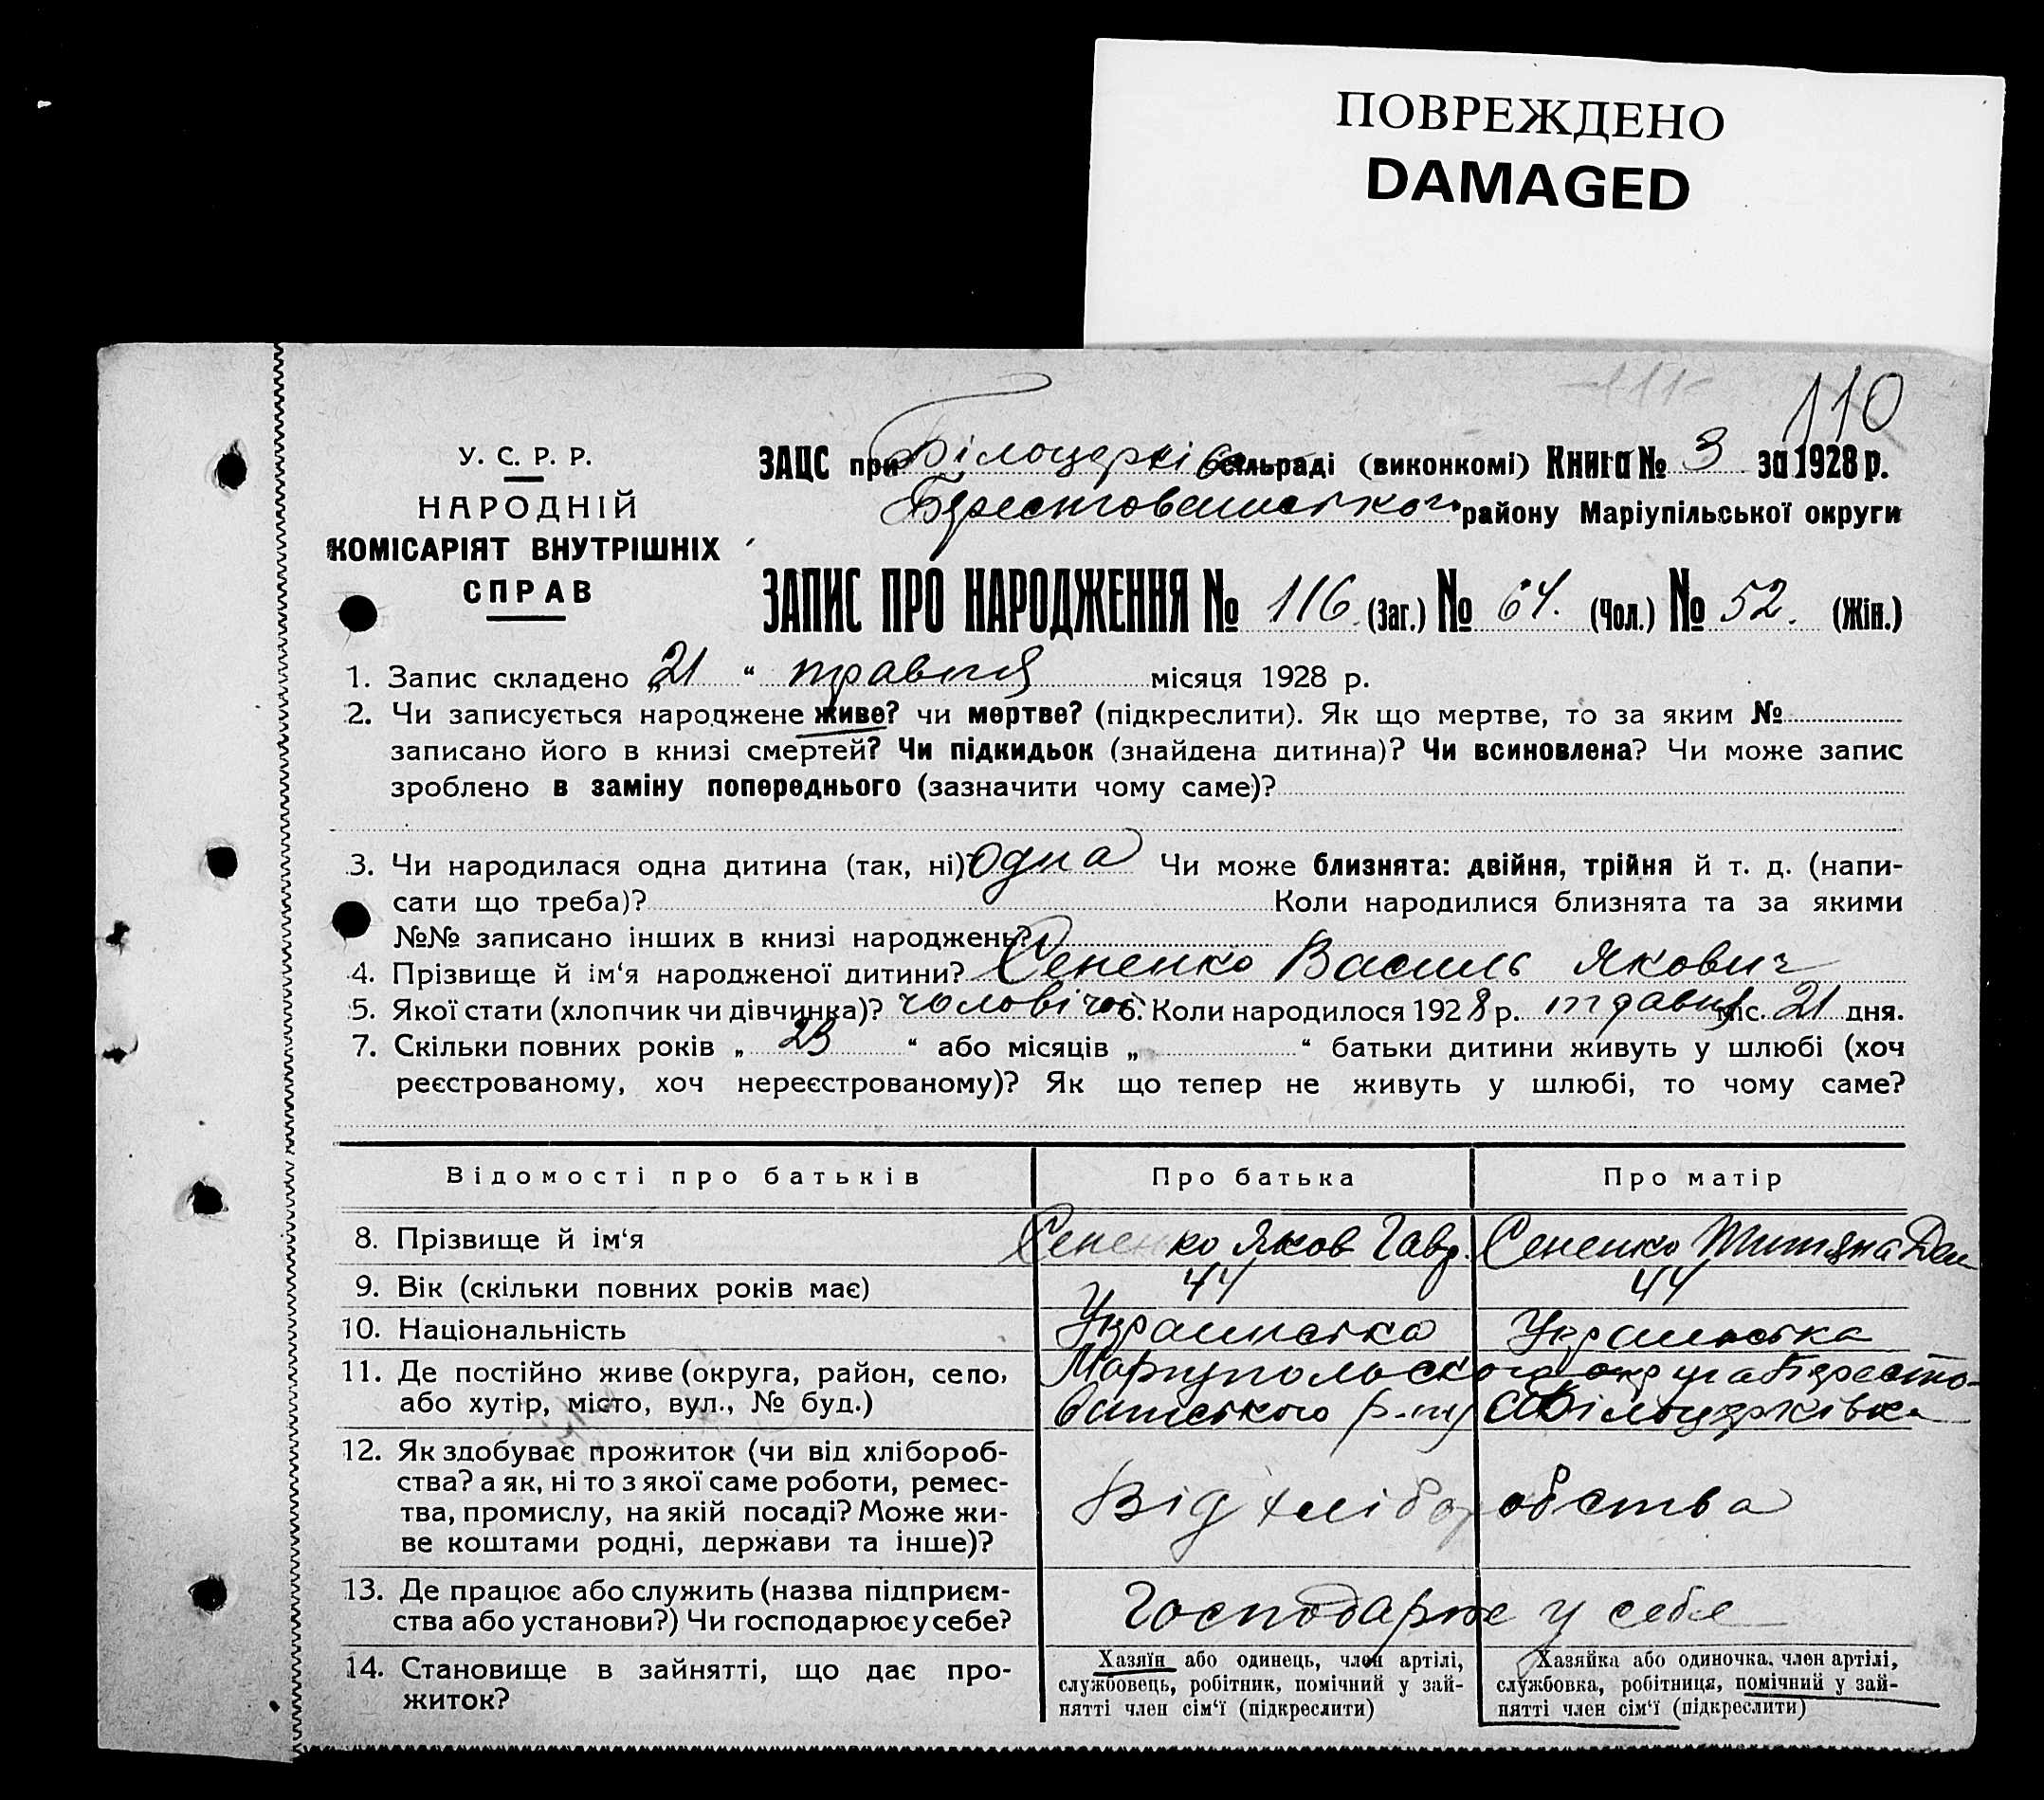 ПОВРЕЖДЕНО
DAMAGED
110
У. С. Р. Р.
НАРОДНІЙ
КОМІСАРІЯТ ВНУТРІШНІХ
СПРАВ
ЗАЦС при Білоцерків сільраді (виконкомі) Книга № 3 за 1928 р.
Берестованського району Маріупільської округи
ЗАПИС ПРО НАРОДЖЕННЯ № 116. (Заг.) № 64. (Чол.) № 52. (Жін.)
1. Запис складено „21“ травня місяця 1928 р.
2. Чи записується народжене живе? чи мертве? (підкреслити). Як що мертве, то за яким №
записано його в книзі смертей? Чи підкидьок (знайдена дитина)? Чи всиновлена? Чи може запис
зроблено в заміну попереднього (зазначити чому саме)?
3. Чи народилася одна дитина (так, ні) одна Чи може близнята: двійня, трійня й т. д. (напи-
сати що треба)? Коли народилися близнята та за якими
№№ записано інших в книзі народжень?
4. Прізвище й ім‘я народженої дитини? Сененко Василь Якович
5. Якої стати (хлопчик чи дівчинка)? чоловічої 6. Коли народилося 1928 р. травня міс. 21 дня.
7. Скільки повних років „ 23 “ або місяців „ “ батьки дитини живуть у шлюбі (хоч
реєстрованому, хоч нереєстрованому)? Як що тепер не живуть у шлюбі, то чому саме?
Відомості про батьків Про батька Про матір
8. Прізвище й ім‘я Сененко Яков Гавр. Сененко Титяна Дем
9. Вік (скільки повних років має) 44 44
10. Національність Українська Українська
11. Де постійно живе (округа, район, село, Маріупольского округа Бересто-
або хутір, місто, вул., № буд.) ванського р-ну с Білоцерківка
12. Як здобуває прожиток (чи від хлібороб-
ства? а як, ні то з якої саме роботи, ремес-
тва, промислу, на якій посаді? Може жи- Від хліборобства
ве коштами родні, держави та інше)?
13. Де працює або служить (назва підприєм- Господарює у себе
ства або установи?) Чи господарює у себе?
14. Становище в зайнятті, що дає про-
житок?
Хазяїн або одинець, член артілі,
службовець, робітник, помічний у зай-
нятті член сім‘ї (підкреслити)
Хазяйка або одиночка, член артілі,
службовка, робітниця, помічний у зай-
нятті член сім‘ї (підкреслити)